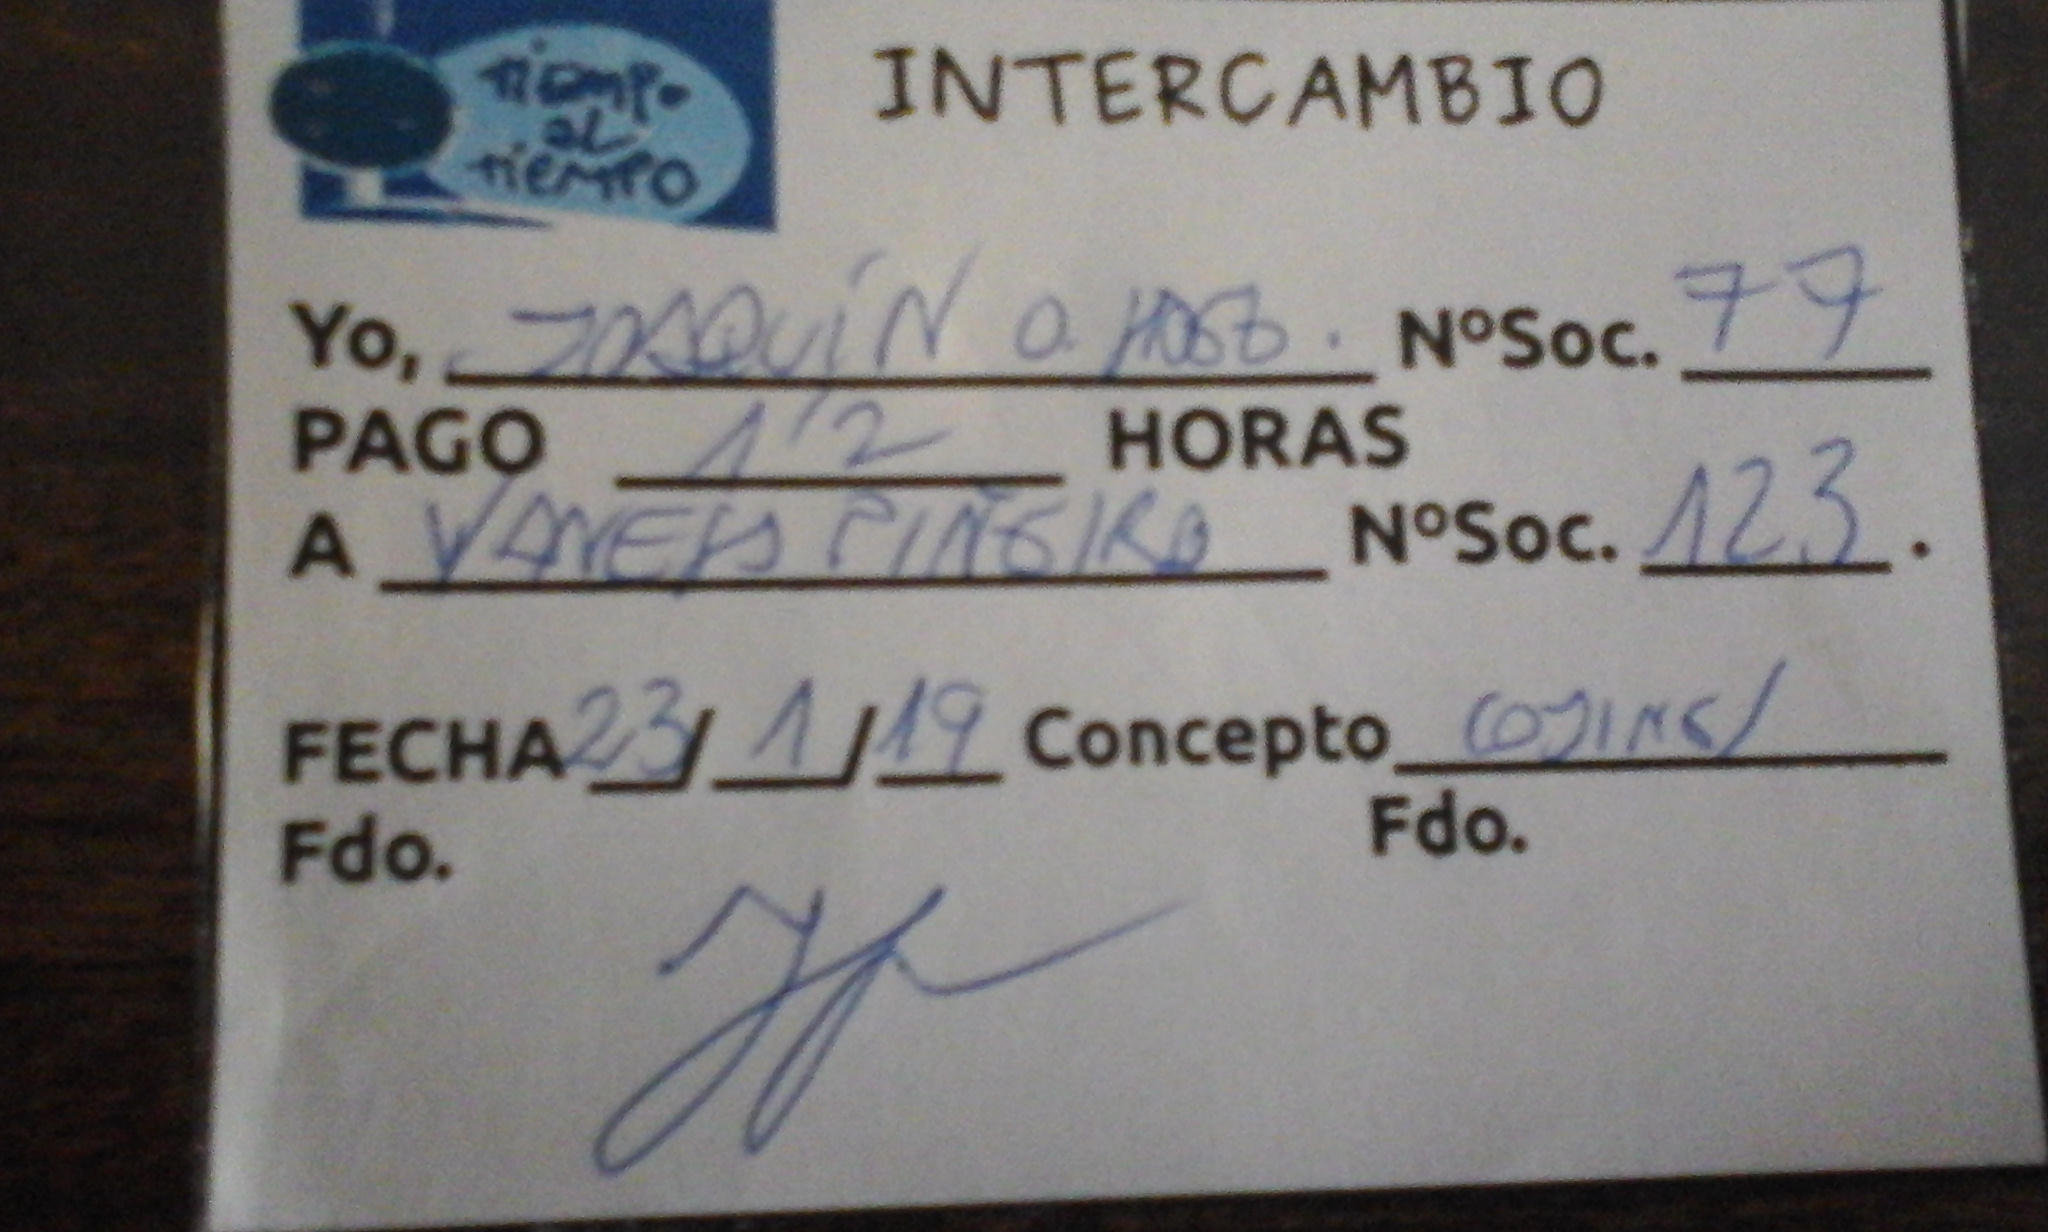 tiempo
al
tiempo
INTERCAMBIO
Yo, JOAQUÍN O. Nº Soc. 77
PAGO 1'2 HORAS
A VANESA PIÑEIRO NºSoc. 123.
FECHA 23/1/19 Concepto COJINES
Fdo. Fdo.